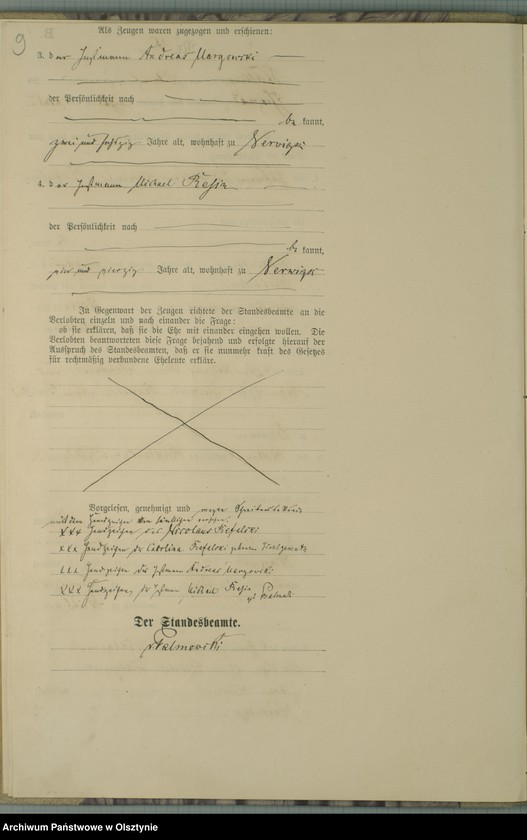 9
Als Zeugen waren zugezogen und erschienen:
3. der Instmann Andreas Margowski
der Persönlichkeit nach
be kannt,
zwei und Jahre alt, wohnhaft zu
4. der Instmann Michael
der Persönlichkeit nach
be kannt,
vier und vierzig Jahre alt, wohnhaft zu
In Gegenwart der Zeugen richtete der Standesbeamte an die
Verlobten einzeln und nach einander die Frage:
ob sie erklären, daß sie die Ehe mit einander eingehen wollen. Die
Verlobten beantworteten diese Frage bejahend und erfolgte hierauf der
Ausspruch des Standesbeamten, daß er sie nunmehr kraft des Gesetzes
für rechtmäßig verbundene Eheleute erkläre.
Vorgelesen, genehmigt und wegen
mit den Handzeichen
XXX Handzeichen des Nicolaus
XXX Handzeichen der Carolina geborene
XXX Handzeichen des Instmann Andreas Margowski
XXX Handzeichen des Instmann Michael
Der Standesbeamte.
Palmowski
Archiwum Państwowe w Olsztynie